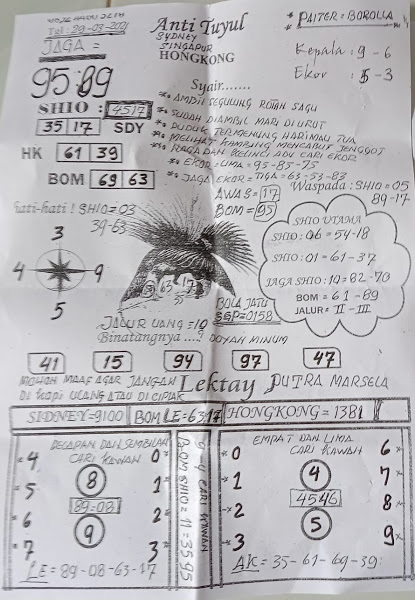 Anti Tuyul
* PAITER = BOROLLA
TGL : 29-03-2021
SYDNEY
SINGAPUR
HONGKONG
JAGA =
Kepala : 9 - 6
Ekor : 5 - 3
95:89
Syair.......
SHIO : 4517
* AMBIL SEGULUNG ROTAN SAGU
35 17 SDY
* SUDAH DIAMBIL MARI DIURUT
* DUDUK TERMENUNG HARIMAU TUA
HK 61 39
* MELIHAT KAMBANG MENCABUT JENGGOT
* RAGA DAN KELINCI ADU CARI EKOR
* EKOR = LIMA = 95-85-75
BOM 69 63
* JAGA EKOR = TIGA = 63-53-83
AWAS = 17
Waspada : SHIO = 05
89-17
BOM = 95
hati-hati ! SHIO = 03
39-63
3
4 9
5
SHIO UTAMA
SHIO : 06 = 54-18
SHIO : 01 = 61-37
JAGA SHIO : 10 = 82-70
BOM = 61-89
JALUR = II - III
BOLA JATU
SGP = 0158
JALUR UANG = 10
Binatangnya ....? DOYAN MINUM
41 15 94 97 47
MOHON MAAF AGAR JANGAN
DI KOPI ULANG ATAU DI CIPLAK
Lektay PUTRA MARSELA
SIDNEY=9100 BOM LE=6317 HONGKONG=1381
DELAPAN DAN SEMBILAN
CARI KAWAN
* 4 0 *
8
* 5 1 *
89-08
* 6 2 *
9
* 7 3 *
LE = 89-08-63-17
BOM SHIO = 11 = 35 95
EMPAT DAN LIMA
CARI KAWAN
* 0 6 *
4
* 1 7 *
4546
* 2 8 *
5
* 3 9 *
AK = 35-61-69-39